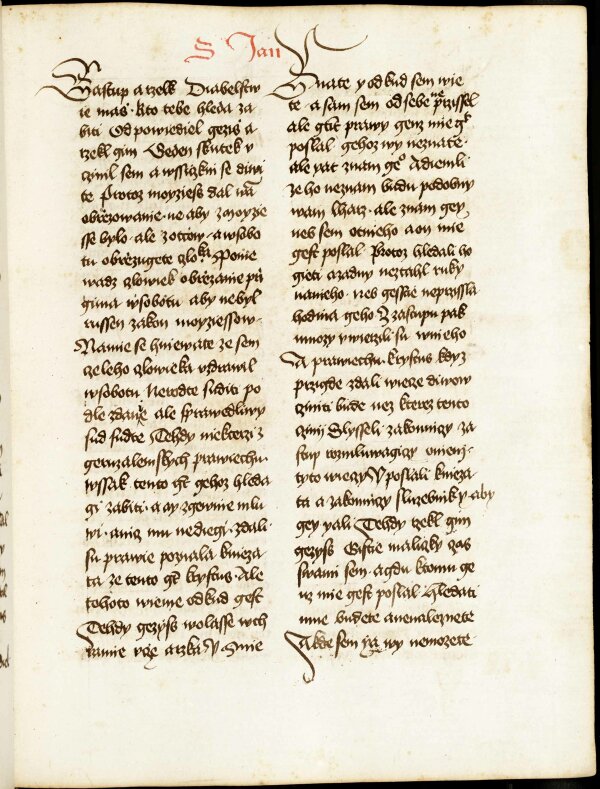 S Jan
Zastup a rzekl Diabelstw
ie mas · kto tebe hleda za
biti Odpowiediel gezis a
rzekl gim Geden skutek v
czinil sem a wssiczkni se diwi
te Protoz moyziess dal wam
obrzezowanie · ne aby z moyzie
sse bylo · ale z otcow · a w sobo
tu obrzezugete czloweka Ponie
wadz czlowiek obrzezanie przi
gima w sobotu aby nebyl
russen zakon moyziessow ·
Na mie se hniewate ze sem
czeleho czlowieka vzdrawil
w sobotu Nerodte suditi po
dle zdanie ale sprawedliwy
sud sudte Tehdy niekterzi z
geruzalemskych prawiechu ·
wssak tento gest gehoz hleda
gi zabiti · a ay zgewnie mlu
wi · a nicz mu nediegi · zdali
su prawie poznala knieza
ta ze tento gest krystus · Ale
tohoto wieme odkud gest
Tehdy gezyss wolasse w ch
ramie vcze a rzka V Mie
znate y odkud sem wie
te · a sam sem od sebe ne przissel
ale gest prawy genz mie gest
poslal gehoz wy neznate ·
ale yat znam geho A diemli
ze ho neznam budu podobny
wam lharz · ale znam gey
neb sem ot nieho a on mie
gest poslal Protoz hledali ho
gieti a zadny neztahl ruky
na nieho · neb gesstie neprzissla
hodina geho Z zastupu pak
mnozy vwierzili su w nieho
A prawiechu · krystus kdyz
przigde zdali wiecze diwow
cziniti bude nez kterez tento
czini Slysseli zakonniczy za
stup rozmluwagiczi o niem ·
tyto wieczy V poslali knieza
ta a zakonniczy sluzebniky · aby
gey yali Tehdy rzekl gim
gezyss Gesstie maliczky czas
s wami sem · a gdu k tomu ge
nz mie gest poslal Hledati
mne budete a nenaleznete
A kdez sem ya wy nemozete